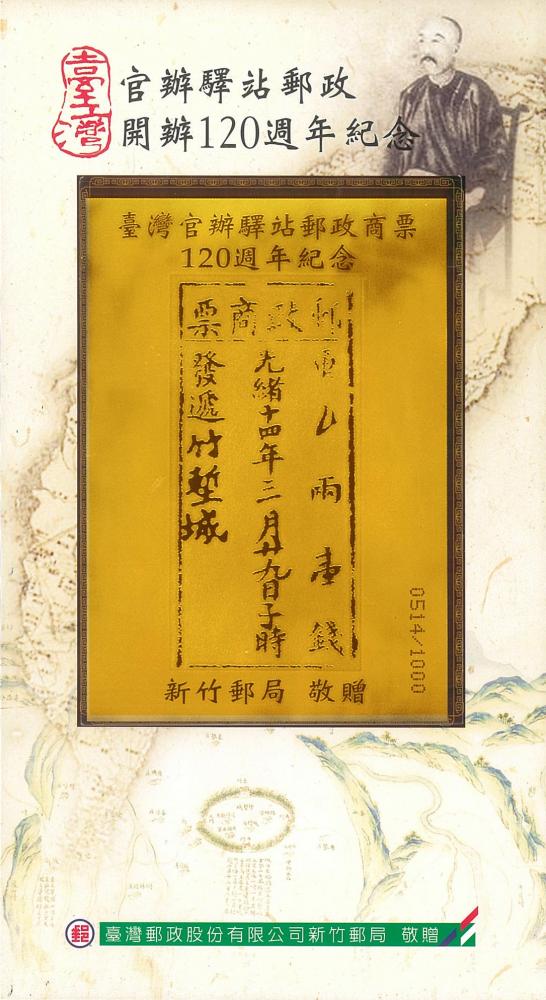 臺灣
官辦驛站郵政
開辦120週年紀念
臺灣官辦驛站郵政商票
120週年紀念
郵政商票
重 兩壹錢
光緒十四年三月廿九日子時
發遞竹塹城
0514/1000
新竹郵局 敬贈
郵
臺灣郵政股份有限公司新竹郵局 敬贈